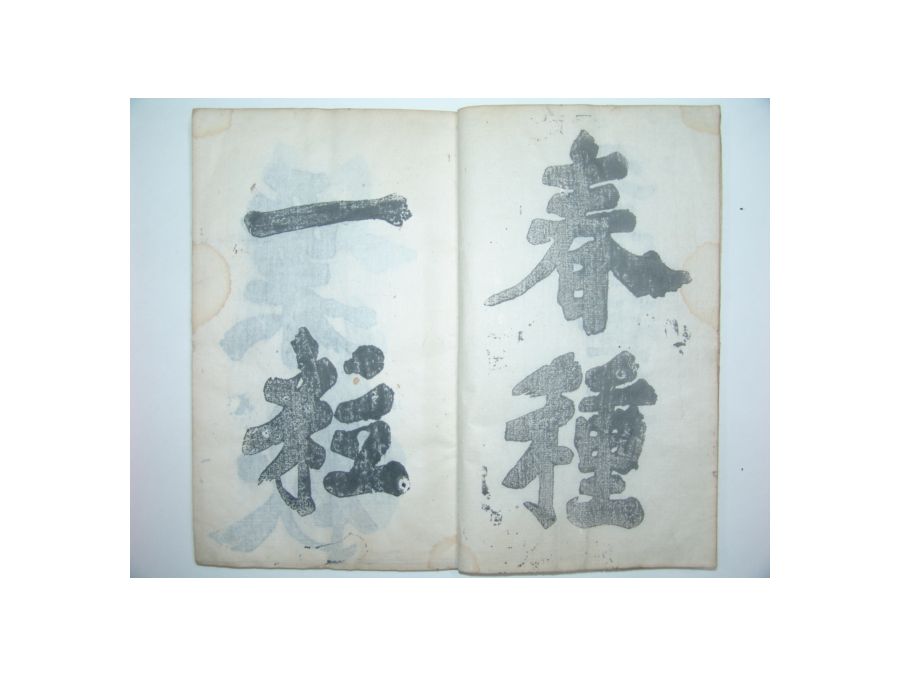 春種
一粒